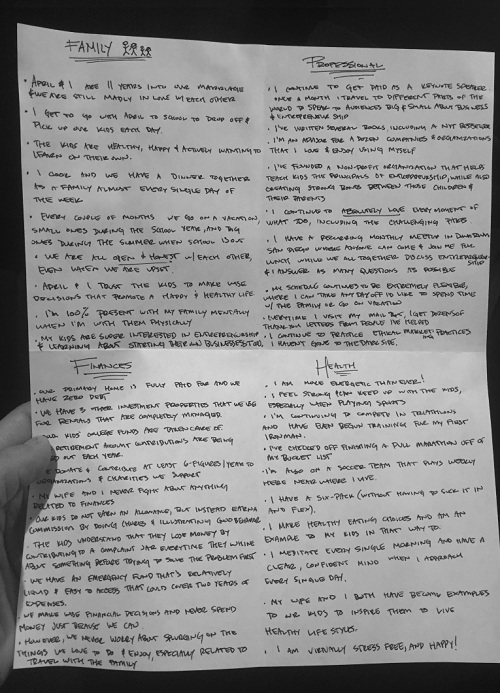 FAMILY
• APRIL & I ARE 11 YEARS INTO OUR MARRIAGE
& WE ARE STILL MADLY IN LOVE W/ EACH OTHER
• I GET TO GO WITH APRIL TO SCHOOL TO DROP OFF &
PICK UP OUR KIDS EACH DAY.
• THE KIDS ARE HEALTHY, HAPPY & ACTIVELY WANTING TO
LEARN ON THEIR OWN.
• I COOK AND WE HAVE A DINNER TOGETHER
AS A FAMILY ALMOST EVERY SINGLE DAY OF
THE WEEK.
• EVERY COUPLE OF MONTHS WE GO ON A VACATION,
SMALL ONES DURING THE SCHOOL YEAR, AND BIG
ONES DURING THE SUMMER WHEN SCHOOL'S OUT
• WE ARE ALL OPEN & HONEST W/ EACH OTHER,
EVEN WHEN WE ARE UPSET.
• APRIL & I TRUST THE KIDS TO MAKE WISE
DECISIONS THAT PROMOTE A HAPPY & HEALTHY LIFE
• I'M 100% PRESENT WITH MY FAMILY MENTALLY
WHEN I'M WITH THEM PHYSICALLY
• MY KIDS ARE SUPER INTERESTED IN ENTREPRENEURSHIP
& LEARNING ABOUT STARTING THEIR OWN BUSINESSES TOO.
PROFESSIONAL
• I CONTINUE TO GET PAID AS A KEYNOTE SPEAKER
ONCE A MONTH I TRAVEL TO DIFFERENT PARTS OF THE
WORLD TO SPEAK TO AUDIENCES BIG & SMALL ABOUT BUSINESS
& ENTREPRENEURSHIP
• I'VE WRITTEN SEVERAL BOOKS, INCLUDING A NYT BESTSELLER
• I'M AN ADVISOR FOR A DOZEN COMPANIES & ORGANIZATIONS
THAT I LOVE & ENJOY USING MYSELF
• I'VE FOUNDED A NON-PROFIT ORGANIZATION THAT HELPS
TEACH KIDS THE PRINCIPALS OF ENTREPRENEURSHIP, WHILE ALSO
CREATING STRONG BONDS BETWEEN THOSE CHILDREN &
THEIR PARENTS
• I CONTINUE TO ABSOLUTELY LOVE EVERY MOMENT OF
WHAT I DO, INCLUDING THE CHALLENGING PARTS.
• I HAVE A RECURRING MONTHLY MEETUP IN DOWNTOWN
SAN DIEGO WHERE ANYONE CAN COME & JOIN ME FOR
LUNCH, WHILE WE ALL TOGETHER DISCUSS ENTREPRENEURSHIP
& I ANSWER AS MANY QUESTIONS AS POSSIBLE
• MY SCHEDULE CONTINUES TO BE EXTREMELY FLEXIBLE,
WHERE I CAN TAKE ANY DAY OFF I'D LIKE TO SPEND TIME
W/ THE FAMILY OR GO ON VACATION
• EVERYTIME I VISIT MY MAIL BOX, I GET DOZENS OF
THANK YOU LETTERS FROM PEOPLE I'VE HELPED
• I CONTINUE TO PRACTICE ETHICAL MARKETING PRACTICES
I HAVEN'T GONE TO THE DARK SIDE.
FINANCES
• OUR PRIMARY HOME IS FULLY PAID FOR AND WE
HAVE ZERO DEBT
• WE HAVE 3 OTHER INVESTMENT PROPERTIES THAT WE USE
FOR RENTALS THAT ARE COMPLETELY MANAGED.
OUR KIDS' COLLEGE FUNDS ARE TAKEN CARE OF.
RETIREMENT ACCOUNT CONTRIBUTIONS ARE BEING
OUT EACH YEAR.
DONATE & CONTRIBUTE AT LEAST 6-FIGURES/YEAR TO
ORGANIZATIONS & CHARITIES WE SUPPORT
• MY WIFE AND I NEVER FIGHT ABOUT ANYTHING
RELATED TO FINANCES
• OUR KIDS DO NOT EARN AN ALLOWANCE, BUT INSTEAD EARN A
COMMISSION BY DOING CHORES & ILLUSTRATING GOOD BEHAVIOR
• THE KIDS UNDERSTAND THAT THEY LOSE MONEY BY
CONTRIBUTING TO A COMPLAINT JAR EVERYTIME THEY WHINE
ABOUT SOMETHING BEFORE TRYING TO SOLVE THE PROBLEM FIRST
• WE HAVE AN EMERGENCY FUND THAT'S RELATIVELY
LIQUID & EASY TO ACCESS THAT COULD COVER TWO YEARS OF
EXPENSES.
• WE MAKE WISE FINANCIAL DECISIONS AND NEVER SPEND
MONEY JUST BECAUSE WE CAN.
• HOWEVER, WE NEVER WORRY ABOUT SPLURGING ON THE
THINGS WE LOVE TO DO & ENJOY, ESPECIALLY RELATED TO
TRAVEL WITH THE FAMILY
HEALTH
• I AM MORE ENERGETIC THAN EVER!
• I FEEL STRONG & CAN KEEP UP WITH THE KIDS,
ESPECIALLY WHEN PLAYING SPORTS
• I'M CONTINUING TO COMPETE IN TRIATHLONS
AND HAVE EVEN BEGUN TRAINING FOR MY FIRST
IRONMAN.
• I'VE CHECKED OFF FINISHING A FULL MARATHON OFF OF
MY BUCKET LIST
• I'M ALSO ON A SOCCER TEAM THAT PLAYS WEEKLY
HERE NEAR WHERE I LIVE.
• I HAVE A SIX-PACK (WITHOUT HAVING TO SUCK IT IN
AND FLEX).
• I MAKE HEALTHY EATING CHOICES AND AM AN
EXAMPLE TO MY KIDS IN THAT WAY TOO.
• I MEDITATE EVERY SINGLE MORNING AND HAVE A
CLEAR, CONFIDENT MIND WHEN I APPROACH
EVERY SINGLE DAY.
• MY WIFE AND I BOTH HAVE BECOME EXAMPLES
TO OUR KIDS TO INSPIRE THEM TO LIVE
HEALTHY LIFE STYLES.
• I AM VIRTUALLY STRESS FREE, AND HAPPY!